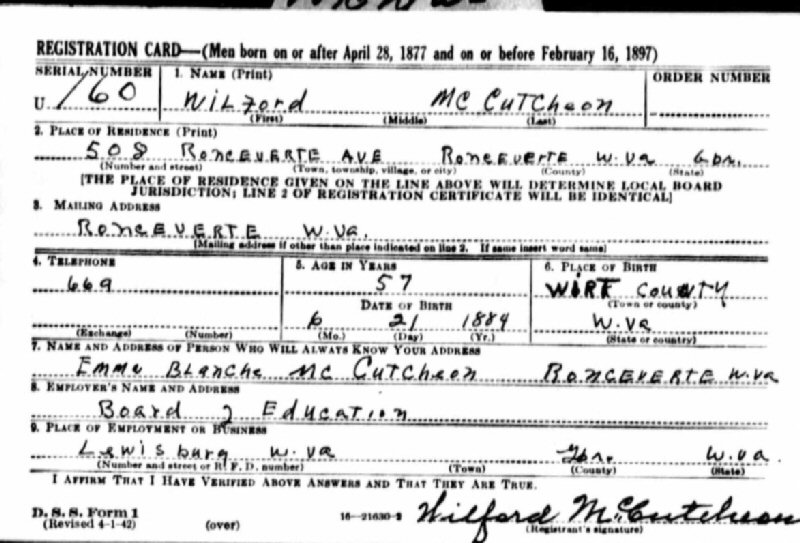 REGISTRATION CARD—(Men born on or after April 28, 1877 and on or before February 16, 1897)
SERIAL NUMBER 1. NAME (Print) ORDER NUMBER
U 160 WILFORD MC CUTCHEON
(First) (Middle) (Last)
2. PLACE OF RESIDENCE (Print)
508 RONCEVERTE AVE RONCEVERTE W.VA
(Number and street) (Town, township, village, or city) (County) (State)
[THE PLACE OF RESIDENCE GIVEN ON THE LINE ABOVE WILL DETERMINE LOCAL BOARD
JURISDICTION; LINE 2 OF REGISTRATION CERTIFICATE WILL BE IDENTICAL]
3. MAILING ADDRESS
RONCEVERTE W.VA.
[Mailing address if other than place indicated on line 2. If same insert word same]
4. TELEPHONE 5. AGE IN YEARS 6. PLACE OF BIRTH
669 57 WIRT COUNTY
DATE OF BIRTH (Town or county)
6 21 1884 W.VA
(Exchange) (Number) (Mo.) (Day) (Yr.) (State or country)
7. NAME AND ADDRESS OF PERSON WHO WILL ALWAYS KNOW YOUR ADDRESS
EMMA BLANCHE MC CUTCHEON RONCEVERTE W.VA
8. EMPLOYER'S NAME AND ADDRESS
BOARD of EDUCATION
9. PLACE OF EMPLOYMENT OR BUSINESS
Lewisburg W.VA Gbr. W.VA.
(Number and street or R. F. D. number) (Town) (County) (State)
I AFFIRM THAT I HAVE VERIFIED ABOVE ANSWERS AND THAT THEY ARE TRUE.
D. S. S. Form 1
(Revised 4-1-42) (over) 16—21630-2 Wilford McCutcheon
(Registrant's signature)